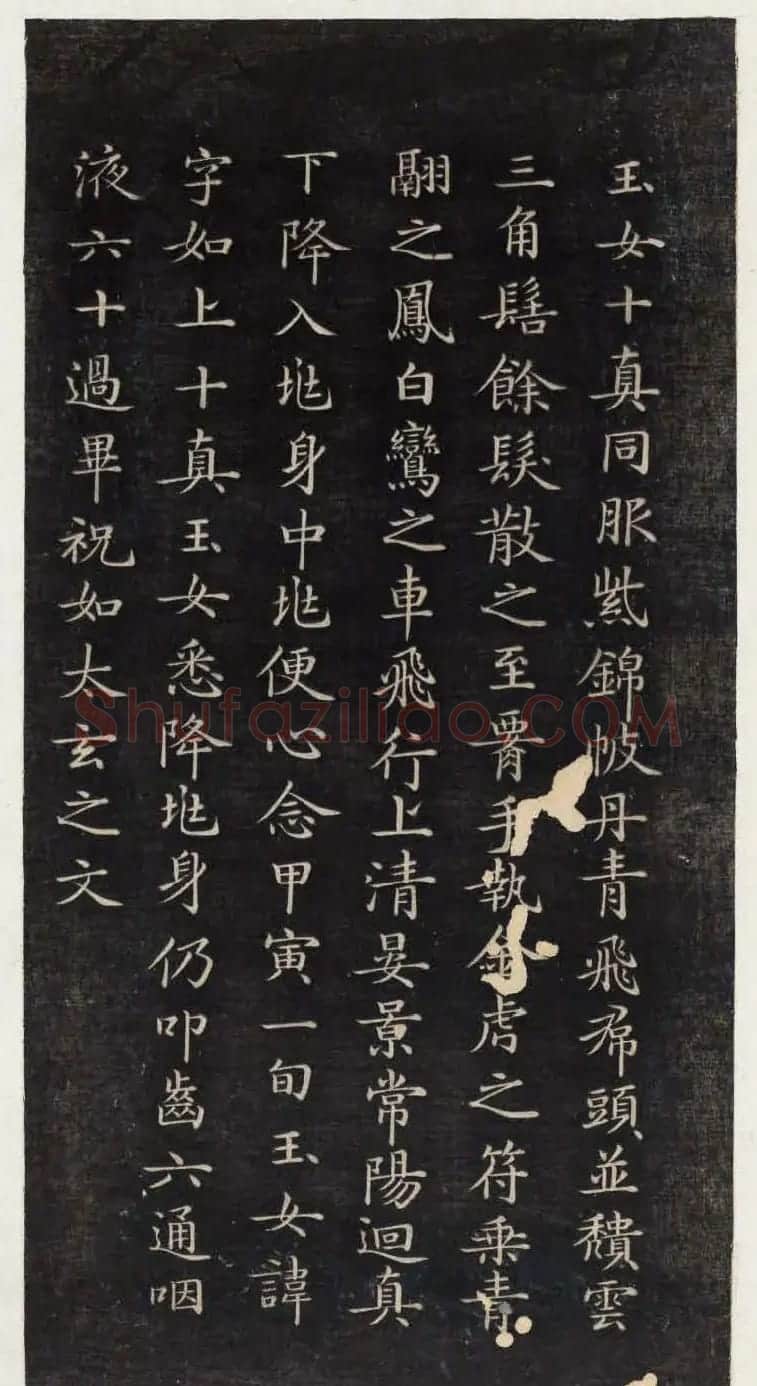 玉女十真同服紫錦帔丹青飛帬頭並頹雲
三角髻餘髮散之至腰手執金虎之符乘青
翮之鳳白鸞之車飛行上清晏景常陽迴真
下降入兆身中兆便心念甲寅一旬玉女諱
字如上十真玉女悉降兆身仍叩齒六通咽
液六十過畢祝如太玄之文
Shufaziliao.COM